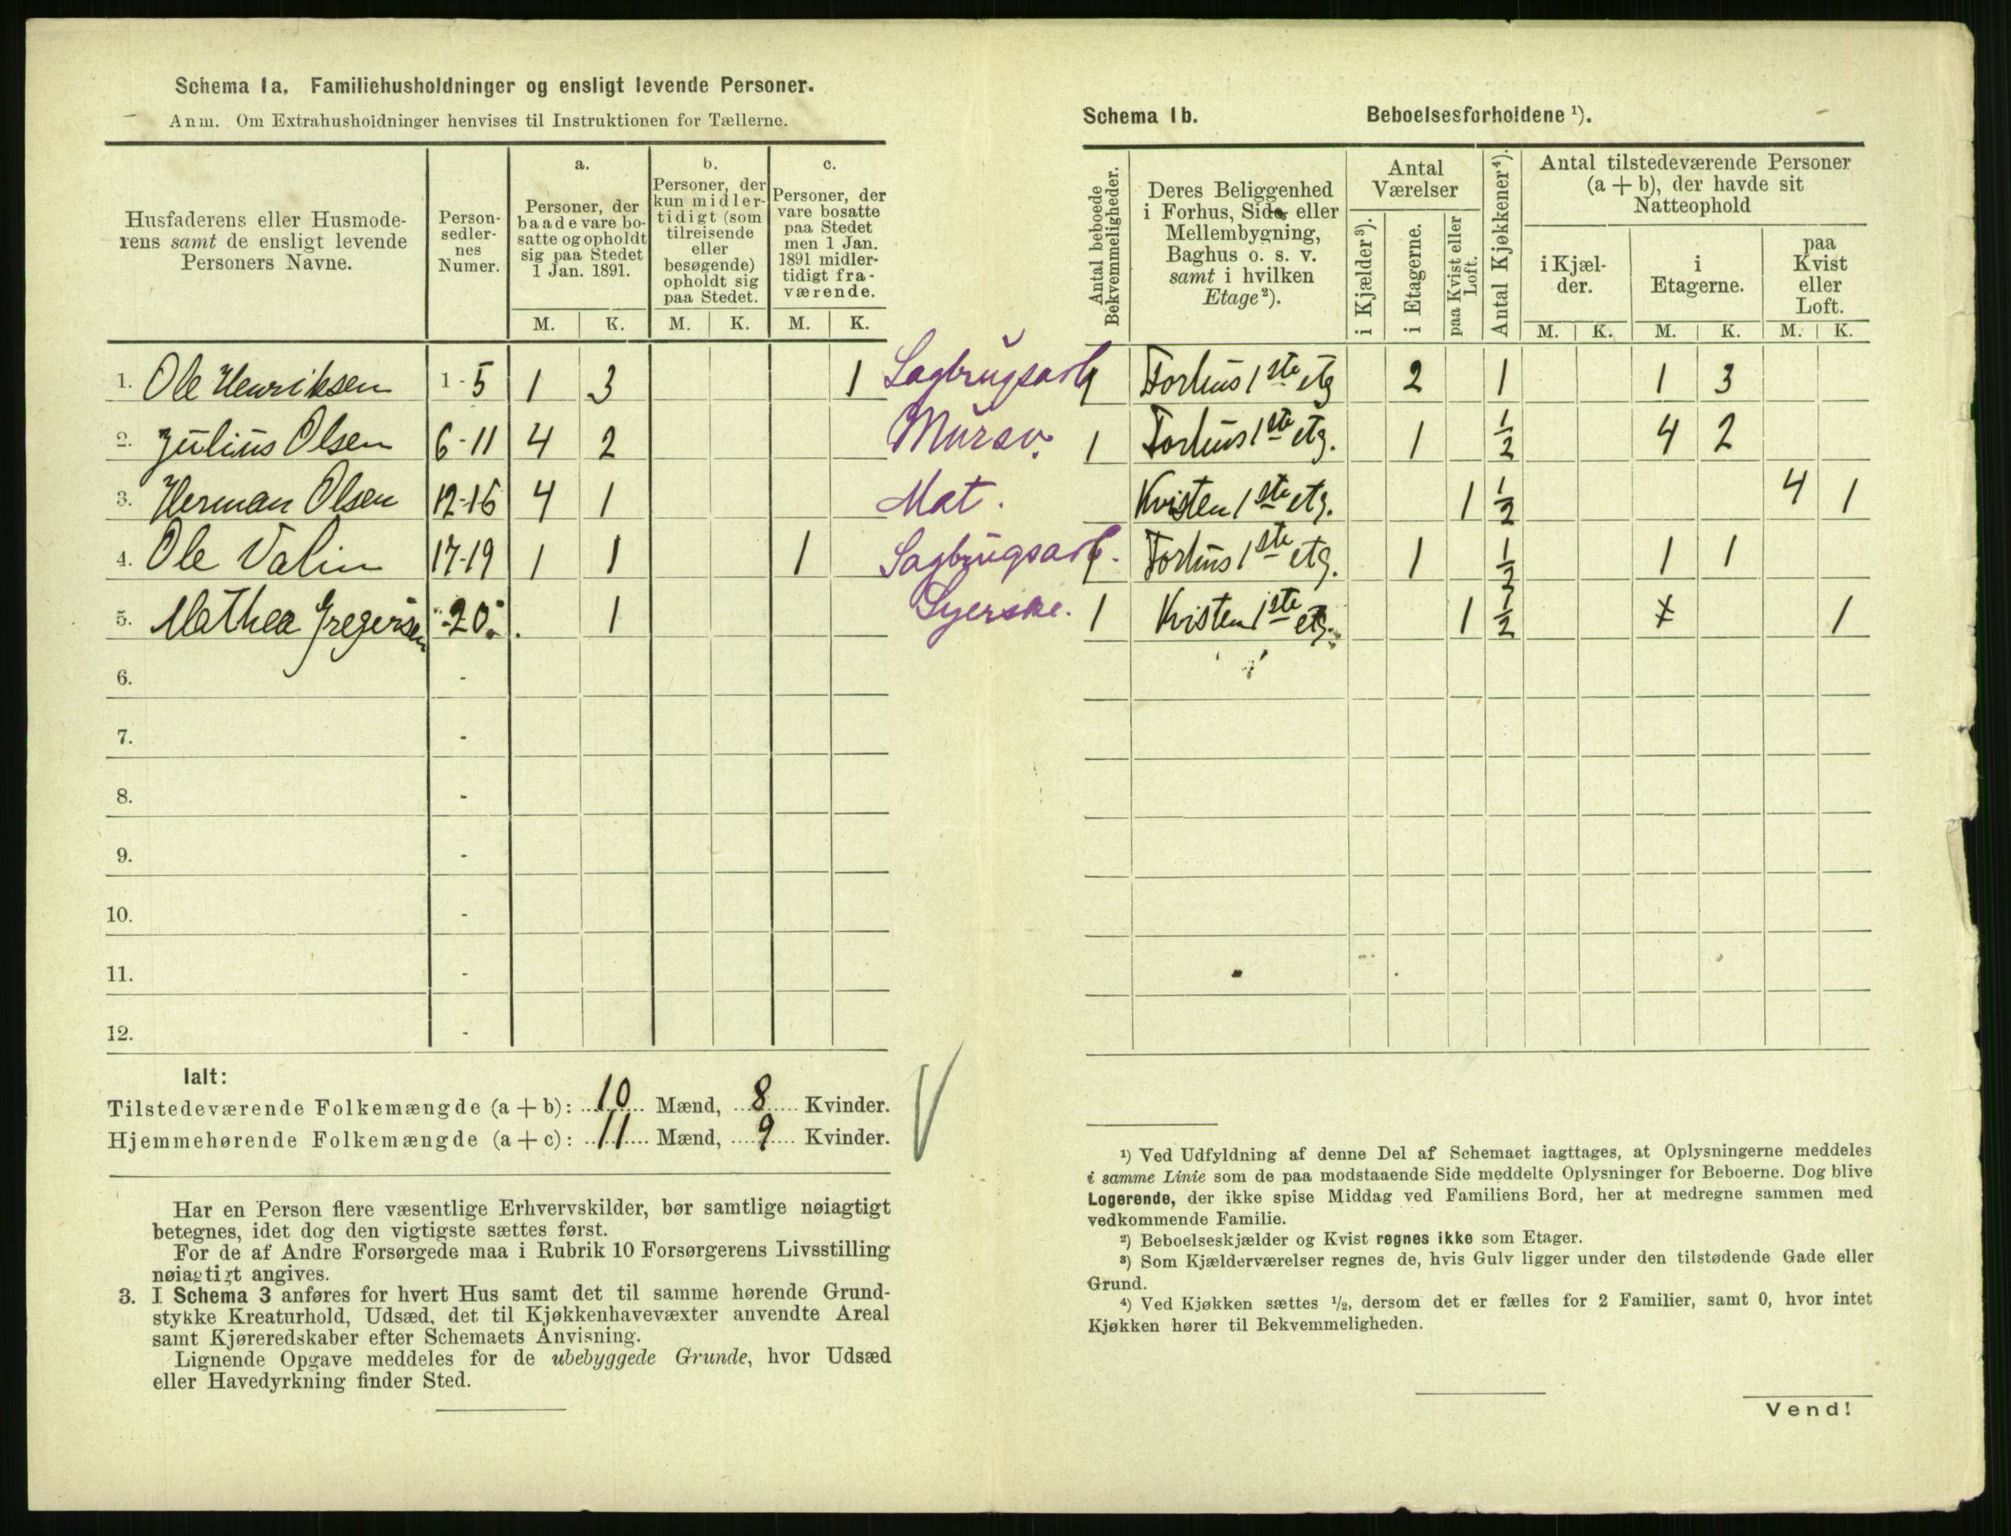 Schema 1a. Familiehusholdninger og ensligt levende Personer.
Anm. Om Extrahusholdninger henvises til Instruktionen for Tællerne.
Husfaderens eller Husmode-
rens samt de ensligt levende
Personers Navne.
Person-
sedler-
nes
Numer.
a.
Personer, der
baade vare bo-
satte og opholdt
sig paa Stedet
1 Jan. 1891.
b.
Personer, der
kun midler-
tidigt (som
tilreisende
eller
besøgende)
opholdt sig
paa Stedet.
c.
Personer, der
vare bosatte
paa Stedet
men 1 Jan.
1891 midler-
tidigt fra-
værende.
M. K. M. K. M. K.
1. Ole Henriksen 1-5 1 3 1 Sagbrugsarb
2. Julius Olsen 6-11 4 2 Murer.
3. Herman Olsen 12-16 4 1 Mat.
4. Ole Valin 17-19 1 1 1 Sagbrugsarb.
5. Mathea Gregersen -20. 1 Syerske.
6. -
7. -
8. -
9. -
10. -
11. -
12. -
Ialt:
Tilstedeværende Folkemængde (a + b): 10 Mænd, 8 Kvinder.
Hjemmehørende Folkemængde (a + c): 11 Mænd, 9 Kvinder.
Har en Person flere væsentlige Erhvervskilder, bør samtlige nøiagtigt
betegnes, idet dog den vigtigste sættes først.
For de af Andre Forsørgede maa i Rubrik 10 Forsørgerens Livsstilling
nøiagtigt angives.
3. I Schema 3 anføres for hvert Hus samt det til samme hørende Grund-
stykke Kreaturhold, Udsæd, det til Kjøkkenhavevæxter anvendte Areal
samt Kjøreredskaber efter Schemaets Anvisning.
Lignende Opgave meddeles for de ubebyggede Grunde, hvor Udsæd
eller Havedyrkning finder Sted.
Schema 1b. Beboelsesforholdene ¹).
Antal beboede
Bekvemmeligheder.
Deres Beliggenhed
i Forhus, Side eller
Mellembygning,
Baghus o. s. v.
samt i hvilken
Etage ²).
Antal
Værelser
i Kjælder ³).
i Etagerne.
paa Kvist eller
Loft.
Antal Kjøkkener ⁴).
Antal tilstedeværende Personer
(a + b), der havde sit
Natteophold
i Kjæl-
der.
i
Etagerne.
paa
Kvist
eller
Loft.
M. K. M. K. M. K.
1 Forhus 1ste etg 2 1 1 3
1 Forhus 1ste etg. 1 1/2 4 2
Kvisten 1ste etg. 1 1/2 4 1
1 Forhus 1ste etg. 1 1/2 1 1
1 Kvisten 1ste etg. 1 1/2 x 1
¹) Ved Udfyldning af denne Del af Schemaet iagttages, at Oplysningerne meddeles
i samme Linie som de paa modstaaende Side meddelte Oplysninger for Beboerne. Dog blive
Logerende, der ikke spise Middag ved Familiens Bord, her at medregne sammen med
vedkommende Familie.
²) Beboelseskjælder og Kvist regnes ikke som Etager.
³) Som Kjælderværelser regnes de, hvis Gulv ligger under den tilstødende Gade eller
Grund.
⁴) Ved Kjøkken sættes ½, dersom det er fælles for 2 Familier, samt 0, hvor intet
Kjøkken hører til Bekvemmeligheden.
Vend!